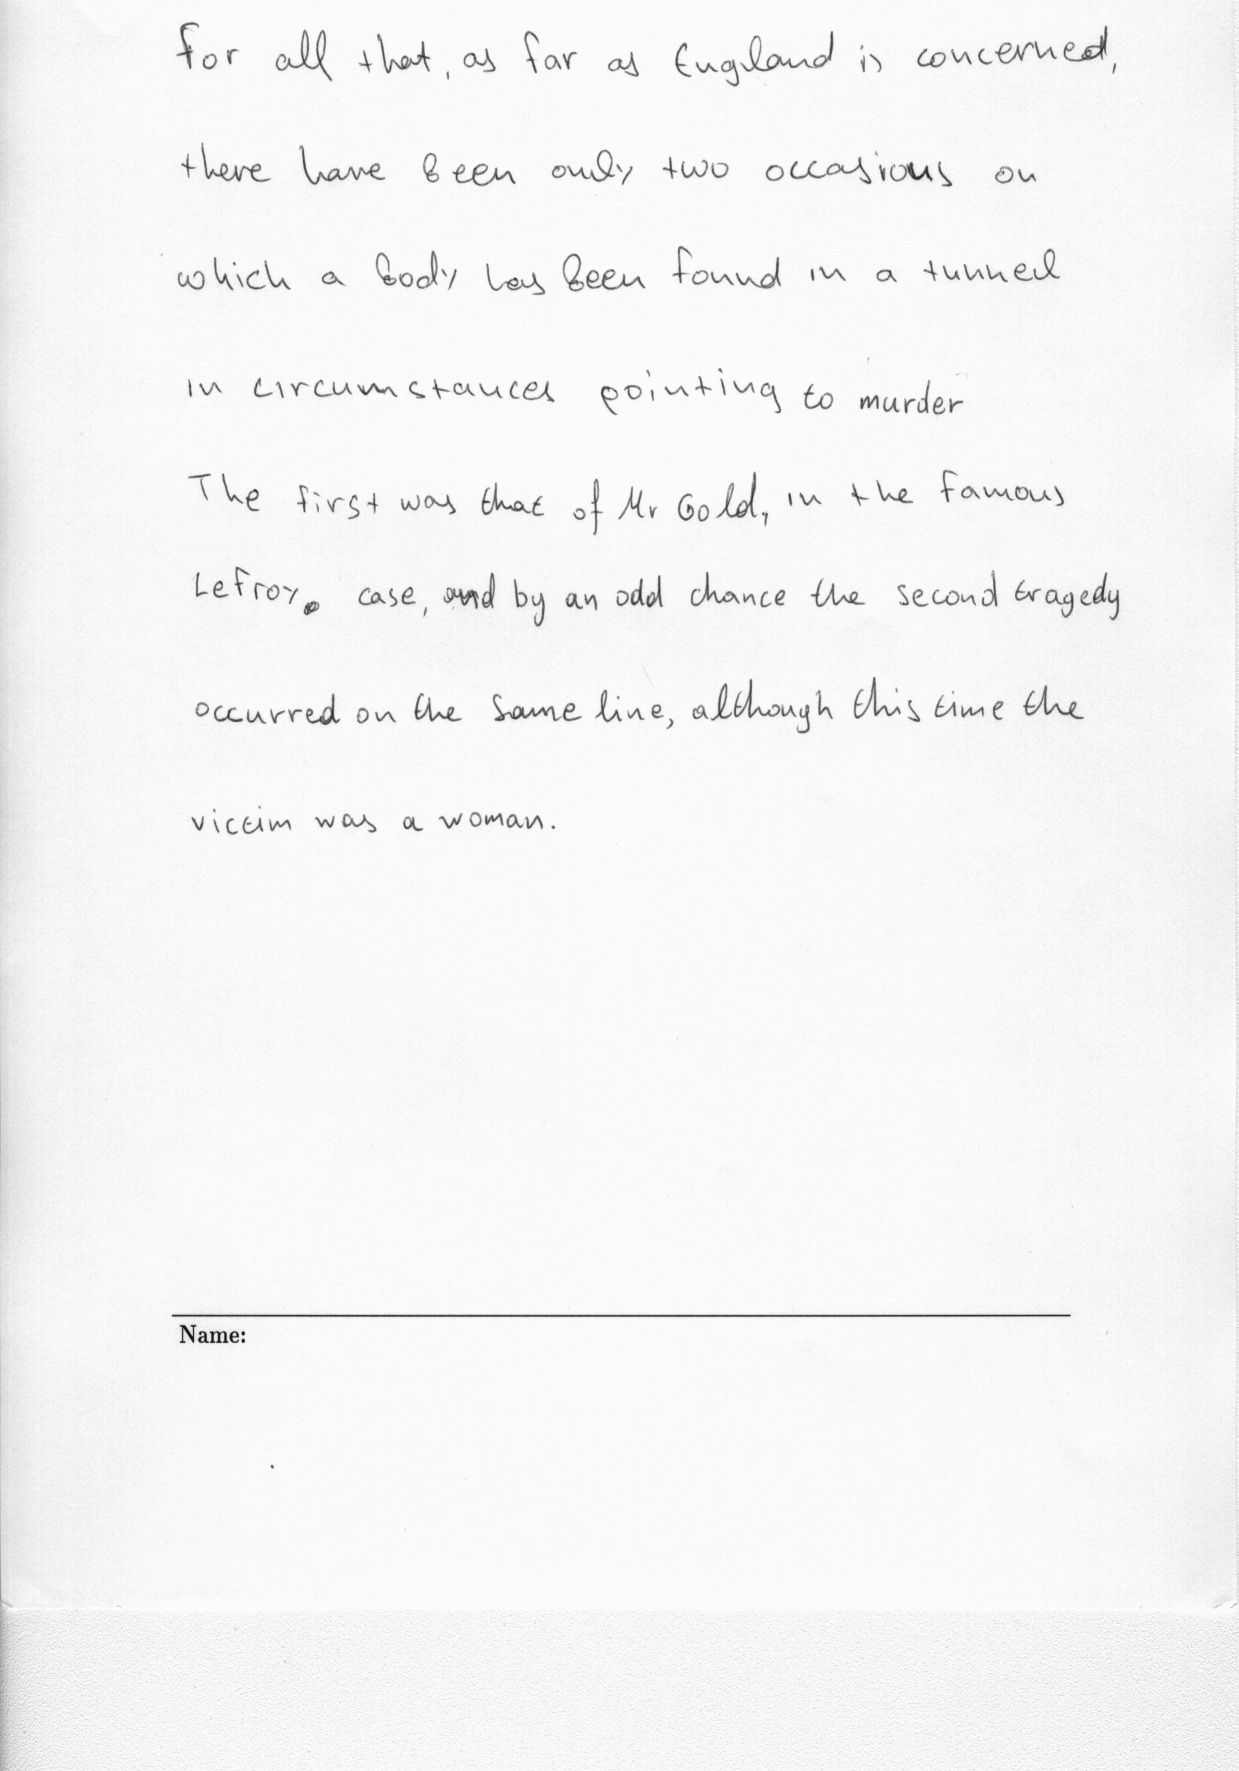 for all that, as far as England is concerned,
there have been only two occasions on
which a body has been found in a tunnel
in circumstances pointing to murder
The first was that of Mr Gold, in the famous
Lefroy. case, and by an odd chance the second tragedy
occurred on the same line, although this time the
victim was a woman.
Name: